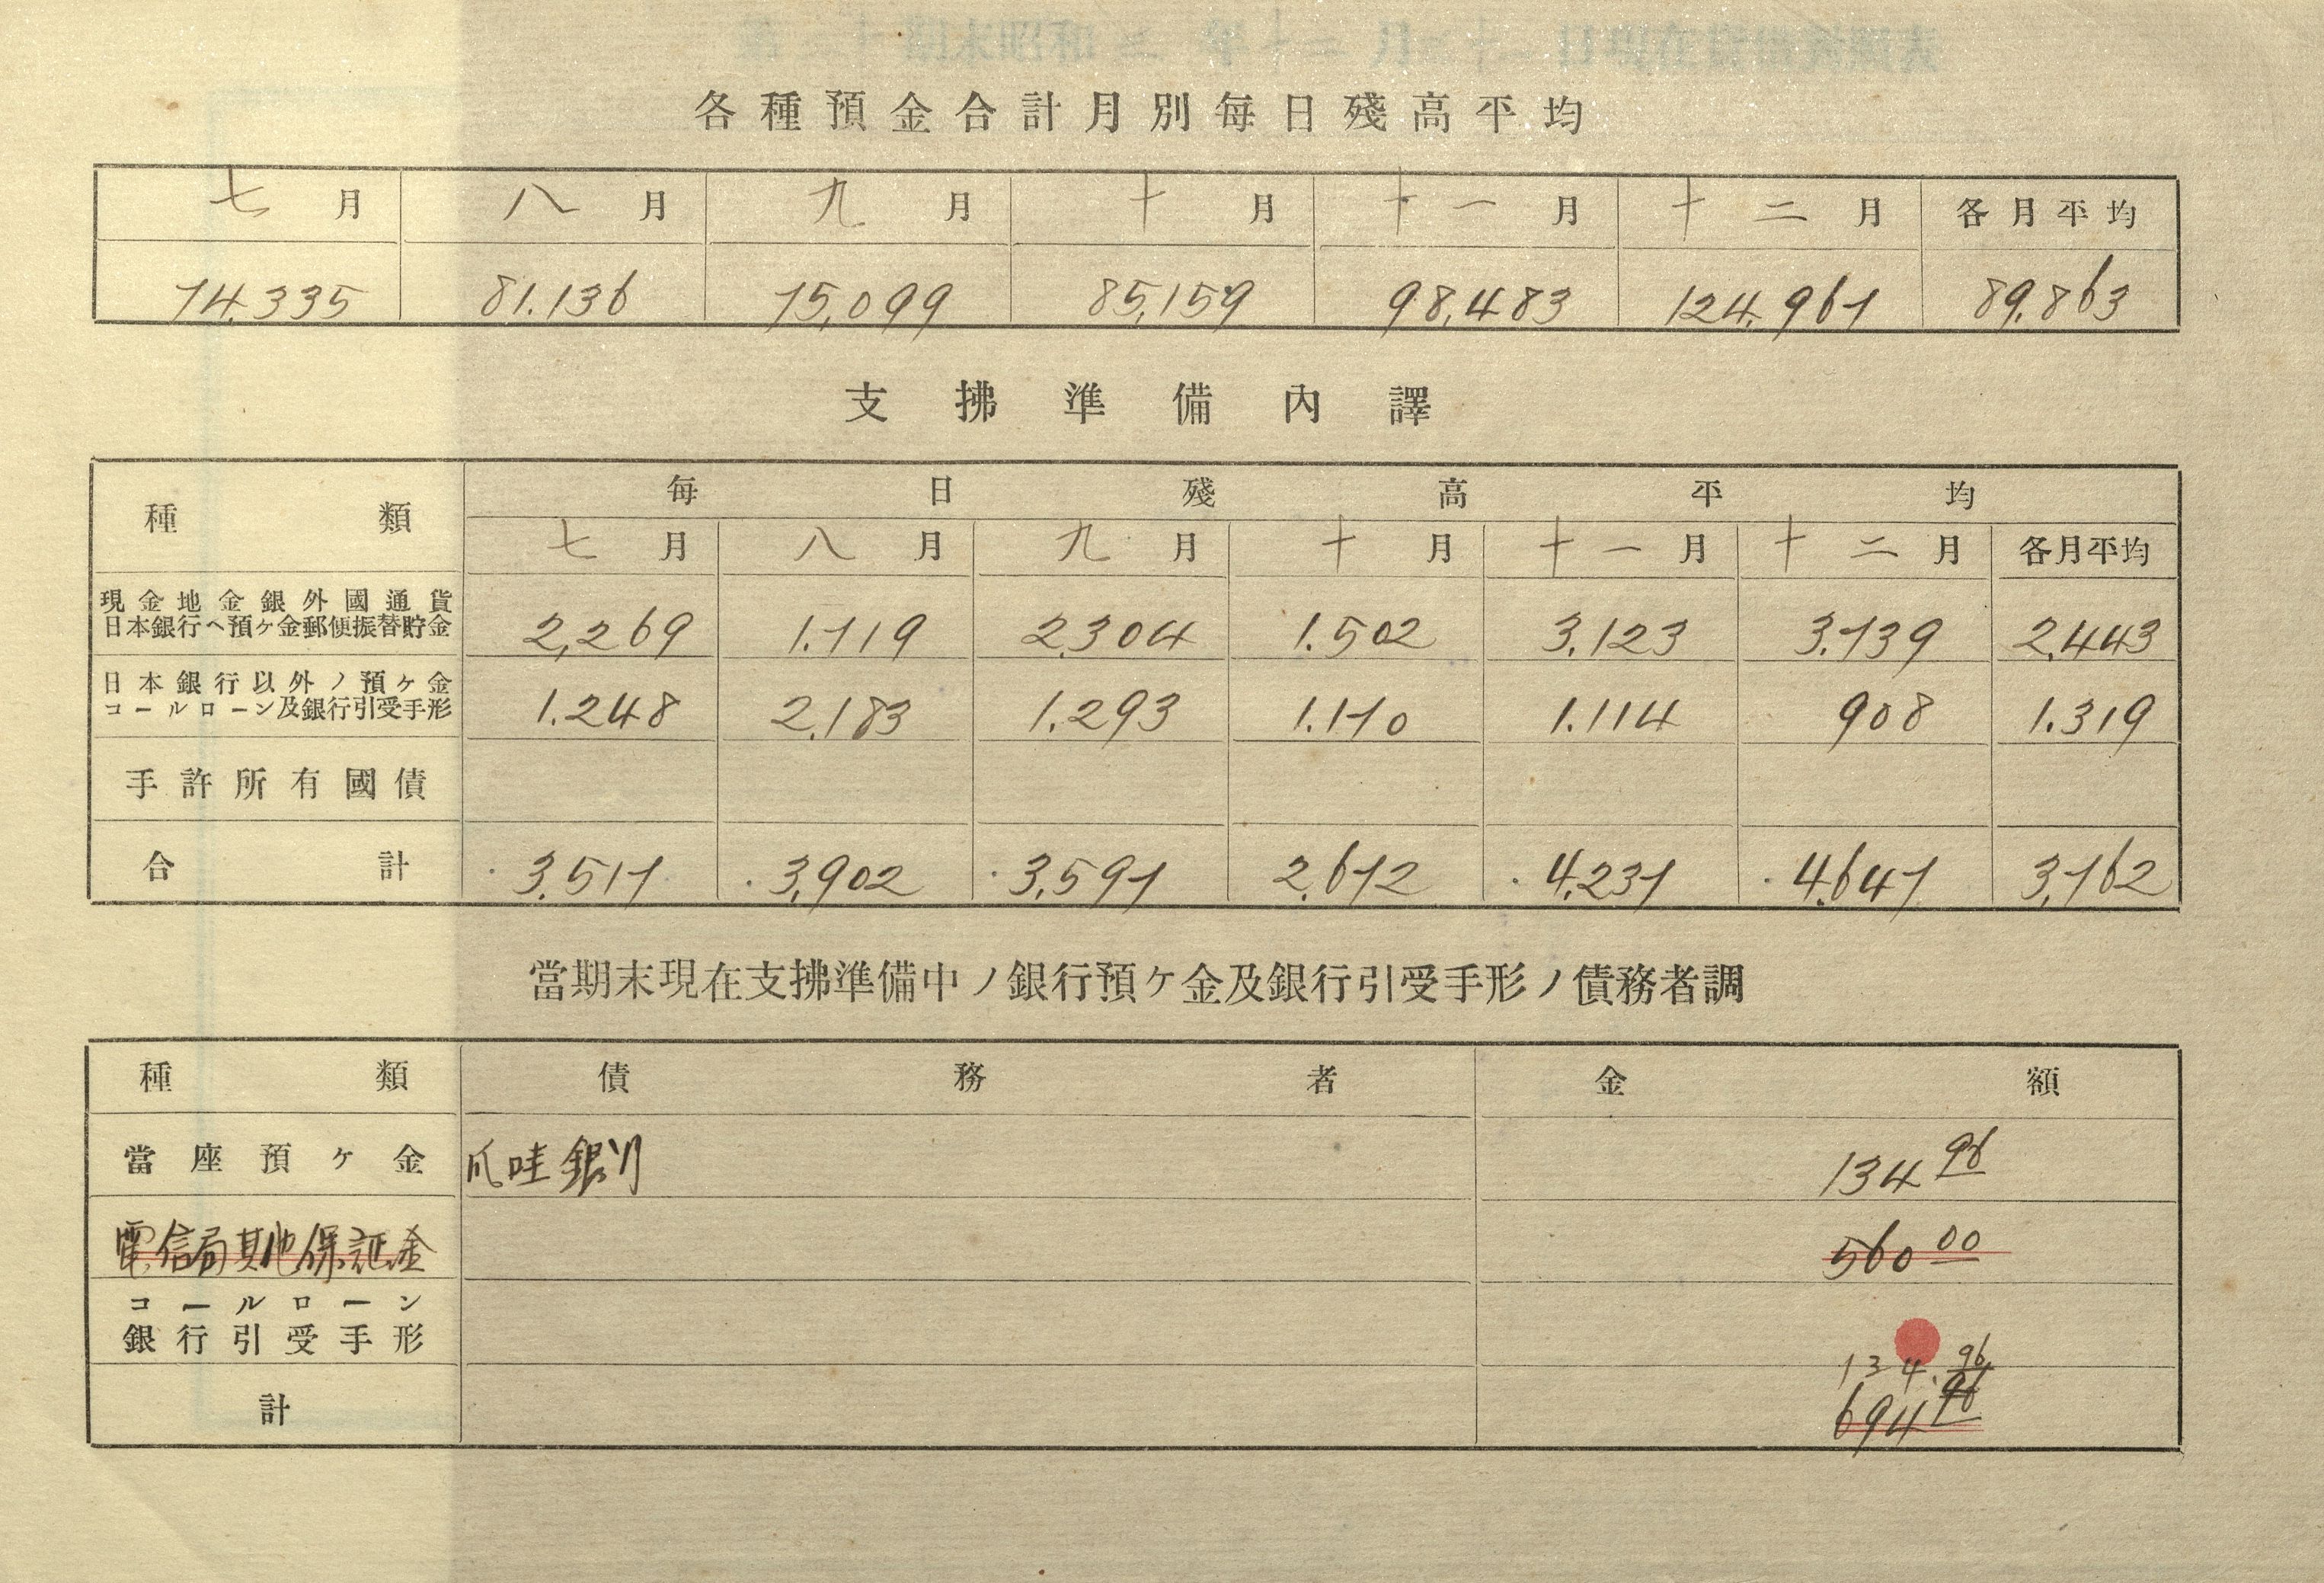 各種預金合計月別每日殘高平均
七月 八月 九月 十月 十一月 十二月 各月平均
74.335 81.136 75,099 85,159 98,483 124,967 89,863
支拂準備內譯
種類 每日殘高平均
七月 八月 九月 十月 十一月 十二月 各月平均
現金地金銀外國通貨
日本銀行ヘ預ケ金郵便振替貯金 2,269 1.719 2.304 1.502 3.123 3.739 2.443
日本銀行以外ノ預ケ金
コールローン及銀行引受手形 1.248 2,183 1.293 1.170 1.114 908 1.319
手許所有國債
合計 3.517 3,902 3,597 2,672 4,237 4,647 3,762
當期末現在支拂準備中ノ銀行預ケ金及銀行引受手形ノ債務者調
種類 債務者 金額
當座預ケ金 爪哇銀行 134 96
電信局其他保証金 560 00
コールローン
銀行引受手形
134.96
計 694 96